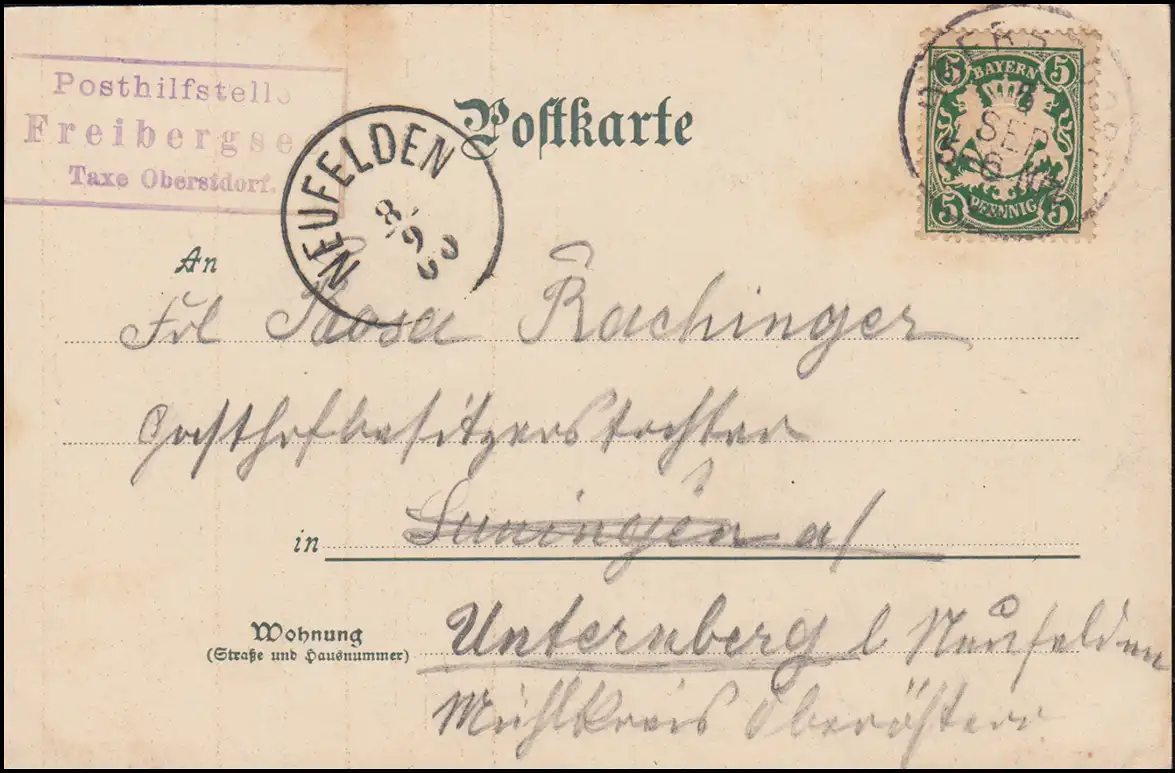 Posthilfstelle
Freibergsee
Taxe Oberstdorf.
Postkarte
NEUFELDEN
8/9 00
BAYERN
5 5
7
SEP
5-6 Nm
5 PFENNIG 5
An
Frl Rosa Rachinger
Gasthofbesitzerstochter
in
a/
Wohnung
(Straße und Hausnummer)
Unternberg b Neufelden
Mühlkreis Oberösterr.